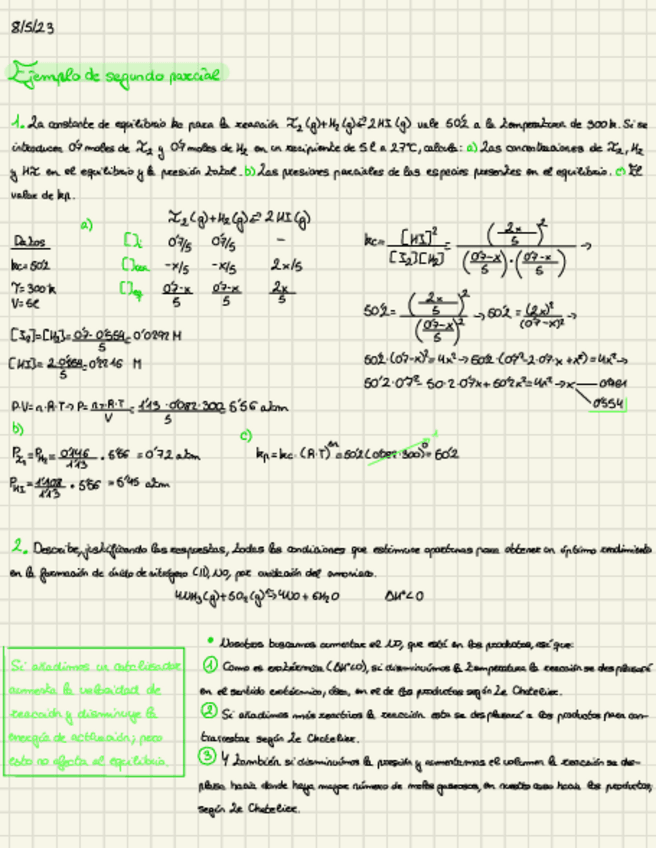 8/5/23
Ejemplo de segundo parcial
1. La constante de equilibrio kc para la reacción I₂(g)+H₂(g)⇄2HI(g) vale 50'2 a la temperatura de 300k. Si se
introducen 0'7 moles de I₂ y 0'7 moles de H₂ en un recipiente de 5l a 27ºC, calcula: a) Las concentraciones de I₂, H₂
y HI en el equilibrio y la presión total. b) Las presiones parciales de las especies presentes en el equilibrio. c) El
valor de kp.
a) I₂(g)+H₂(g)⇄2HI(g)
Datos
[]i 0'7/5 0'7/5 -
kc=50'2
-x/5 -x/5 2x/5
T=300k
V=5l
[]eq 0'7-x/5 0'7-x/5 2x/5
[I₂]=[H₂]=0'7-0'554/5=0'0292 M
[HI]=2·0'554/5=0'2216 M
P·V=n·R·T→P=nT·R·T/V=1'13·0'082·300/5
b)
P_I₂=P_H₂=0'146/1'13 · =0'72 atm
P_HI=1'108/1'13 · =5'45 atm
kc=[HI]²/[I₂][H₂]=(2x/5)²/(0'7-x/5)·(0'7-x/5)→
50'2=(2x/5)²/(0'7-x/5)²→50'2=(2x)²/(0'7-x)²→
50'2·(0'7-x)²=4x²→50'2·(0'7²-2·0'7·x+x²)=4x²→
50'2·0'7²-50'2·0'7x+50'2x²=4x²→x
0'554
c) kp=kc·(R·T)^Δn=50'2(0'082·300)⁰=50'2
1
2. Describe, justificando las respuestas, todas las condiciones que estimase oportunas para obtener un óptimo rendimiento
en la formación de óxido de nitrógeno (II), NO, por oxidación del amoniaco.
4NH₃(g)+5O₂(g)⇄4NO+6H₂O ΔHº<0
Si añadimos un catalizador
aumenta la velocidad de
reacción y disminuye la
energía de activación; pero
esto no afecta al equilibrio.
• Nosotros buscamos aumentar el NO, que está en los productos, así que:
① Como es exotérmica (ΔHº<0), si disminuimos la temperatura la reacción se desplazará
en el sentido exotérmico, en el de los productos según Le Chatelier.
② Si añadimos más reactivos la reacción esta se desplazará a los productos para con-
trarrestar según Le Chatelier.
③ Y también si disminuimos la presión y aumentamos el volumen la reacción se des-
plaza hacia donde haya mayor número de moles gaseosos, en nuestro caso hacia los productos,
según Le Chatelier.